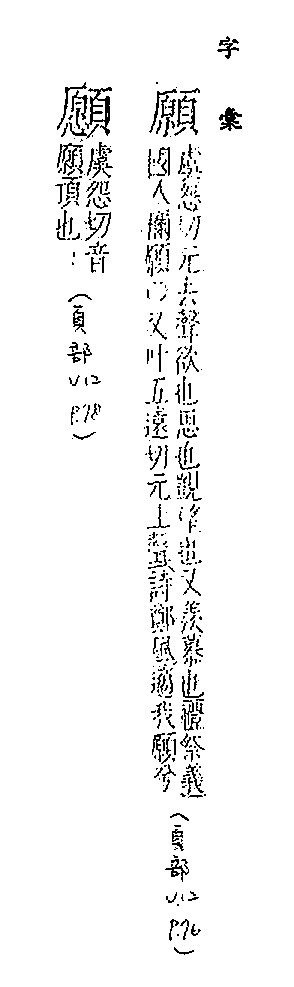 字彙
願
虞怨切元去聲欲也思也覬望也又羨慕也禮祭義
國人稱願○又叶五遠切元上聲詩鄭風適我願兮
(頁部 V.12 P.76)
顖
虞怨切音
願頂也
(頁部 V.12 P.78)